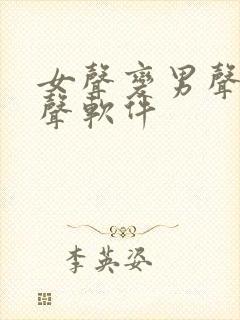 女聲變男聲
聲軟件
李英姿